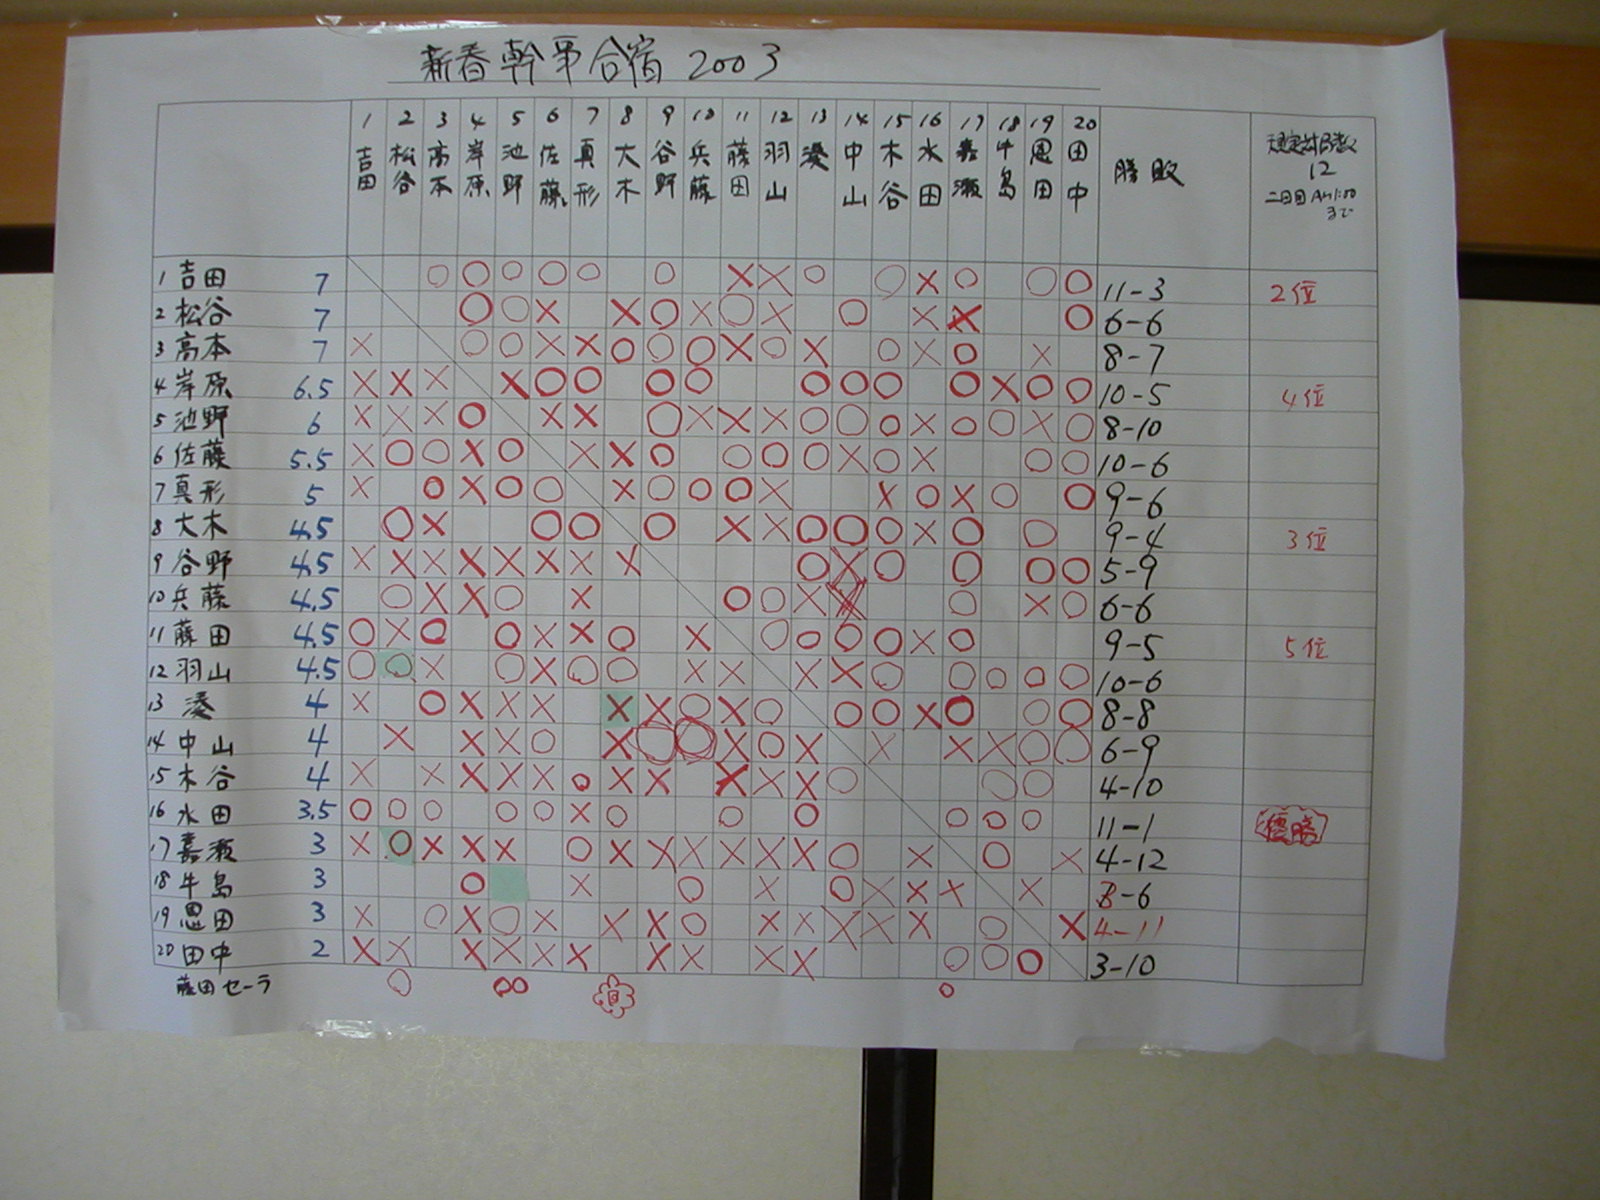 新春幹事合宿 2003
1 2 3 4 5 6 7 8 9 10 11 12 13 14 15 16 17 18 19 20
吉田 松谷 高本 岸原 池野 佐藤 真形 大木 谷野 兵藤 藤田 羽山 湊 中山 木谷 水田 嘉瀬 牛島 恩田 田中 勝敗
規定対局数
12
二日目 AM1:00
まで
1 吉田 7 ○ ○ ○ ○ ○ ○ × × ○ ○ × ○ ○ ○ 11-3 2位
2 松谷 7 ○ ○ × × ○ × ○ × ○ × × ○ 6-6
3 高本 7 × ○ ○ × × ○ ○ ○ × ○ × ○ × ○ × 8-7
4 岸原 6.5 × × × × ○ ○ ○ ○ ○ ○ ○ ○ × ○ ○ 10-5 4位
5 池野 6 × × × ○ × × ○ × × × ○ ○ ○ × ○ ○ × ○ 8-10
6 佐藤 5.5 × ○ ○ × ○ × × ○ ○ ○ ○ × ○ × ○ ○ 10-6
7 真形 5 × ○ × ○ ○ × ○ ○ ○ × × ○ × ○ ○ 9-6
8 大木 4.5 ○ × ○ ○ ○ × × ○ ○ ○ × ○ ○ 9-4 3位
9 谷野 4.5 × × × × × × × × ○ × ○ ○ ○ ○ 5-9
10 兵藤 4.5 ○ × × ○ × ○ ○ × ○ × ○ 6-6
11 藤田 4.5 ○ × ○ ○ × × ○ × ○ ○ ○ ○ × ○ 9-5 5位
12 羽山 4.5 ○ ○ × ○ × ○ ○ × × × × ○ ○ ○ ○ ○ 10-6
13 湊 4 × ○ × × × × × ○ × ○ ○ ○ × ○ ○ ○ 8-8
14 中山 4 × × × ○ × ○ ○ × ○ × × × × ○ ○ 6-9
15 木谷 4 × × × × × ○ × × × × × ○ ○ ○ 4-10
16 水田 3.5 ○ ○ ○ ○ ○ × ○ ○ ○ ○ ○ ○ 11-1 優勝
17 嘉瀬 3 × ○ × × × ○ × × × × × × ○ × ○ × 4-12
18 牛島 3 ○ × ○ × ○ × × × × -6
19 恩田 3 × ○ × ○ × × × ○ × × × × × ○ × 4-11
20 田中 2 × × × × × × × × × × ○ ○ ○ 3-10
藤田セーラ ○ ○○ ○